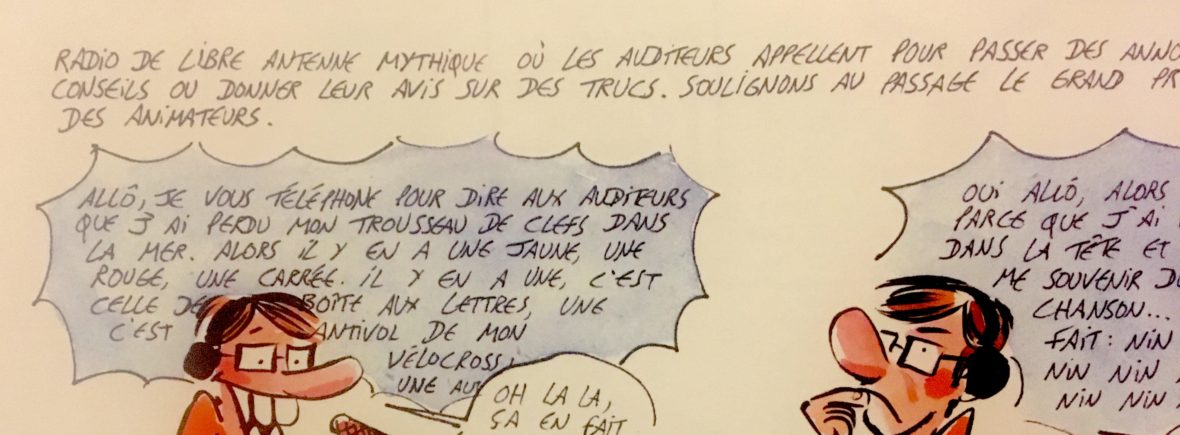 RADIO DE LIBRE ANTENNE MYTHIQUE OÙ LES AUDITEURS APPELLENT POUR PASSER DES
CONSEILS OU DONNER LEUR AVIS SUR DES TRUCS. SOULIGNONS AU PASSAGE LE GRAND
DES ANIMATEURS.
ALLÔ, JE VOUS TÉLÉPHONE POUR DIRE AUX AUDITEURS
QUE J'AI PERDU MON TROUSSEAU DE CLEFS DANS
LA MER. ALORS IL Y EN A UNE JAUNE, UNE
ROUGE, UNE CARRÉE. IL Y EN A UNE, C'EST
CELLE DE BOÎTE AUX LETTRES, UNE
C'EST ANTIVOL DE MON
VÉLOCROSS,
UNE
OH LA LA,
ÇA EN FAIT
OUI ALLÔ, ALORS
PARCE QUE J'AI
DANS LA TÊTE ET
ME SOUVENIR
CHANSON...
FAIT : NIN
NIN NIN
NIN NIN